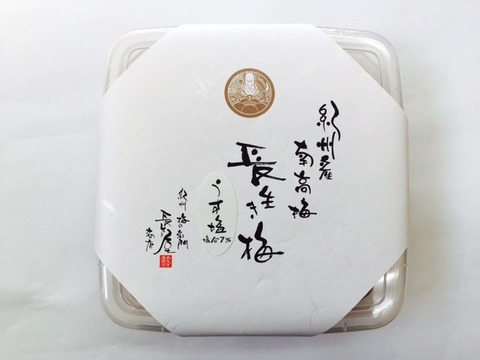 紀州産
南高梅
長生き梅
うす塩
塩分7%
紀州 梅の名門
長生屋
本店